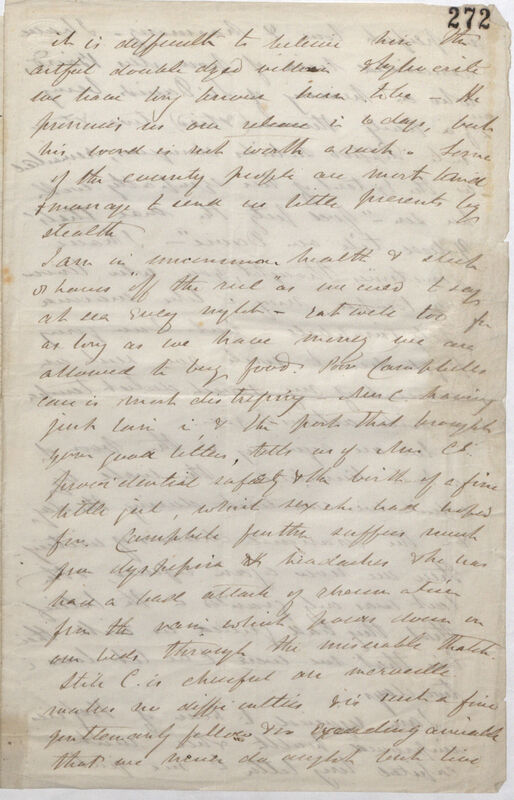 272
it is difficult to believe him the
artful double dyed villain & hypocrite
we have long known him to be – He
promises us our release in 10 days, but
his word is not worth a rush. Some
of the country people are most kind
& manage to send us little presents by
stealth
I am in uncommon health & sleep
8 hours "off the reel" as we used to say
at sea every night – eat well too for
as long as we have money we are
allowed to buy food. Poor Campbell's
case is most distressing Mrs C. having
just lain in, & the post that brought
your good letters, tells us of Mrs C's
providential safety & the birth of a fine
little girl, which sex she had hoped
for. Campbell further suffers much
from dyspepsia & headaches & he has
had a bad attack of rheumatism
from the rain which pours down on
our beds through the miserable thatch.
Still C. is cheerful au merveille
makes no difficulties & is such a fine
gentlemanly fellow & is exceeding amiable
that we never do aught but live